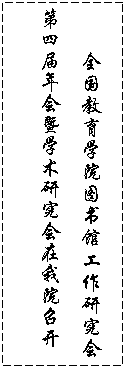 全国教育学院图书馆工作研究会
第四届年会暨学术研究会在我院召开